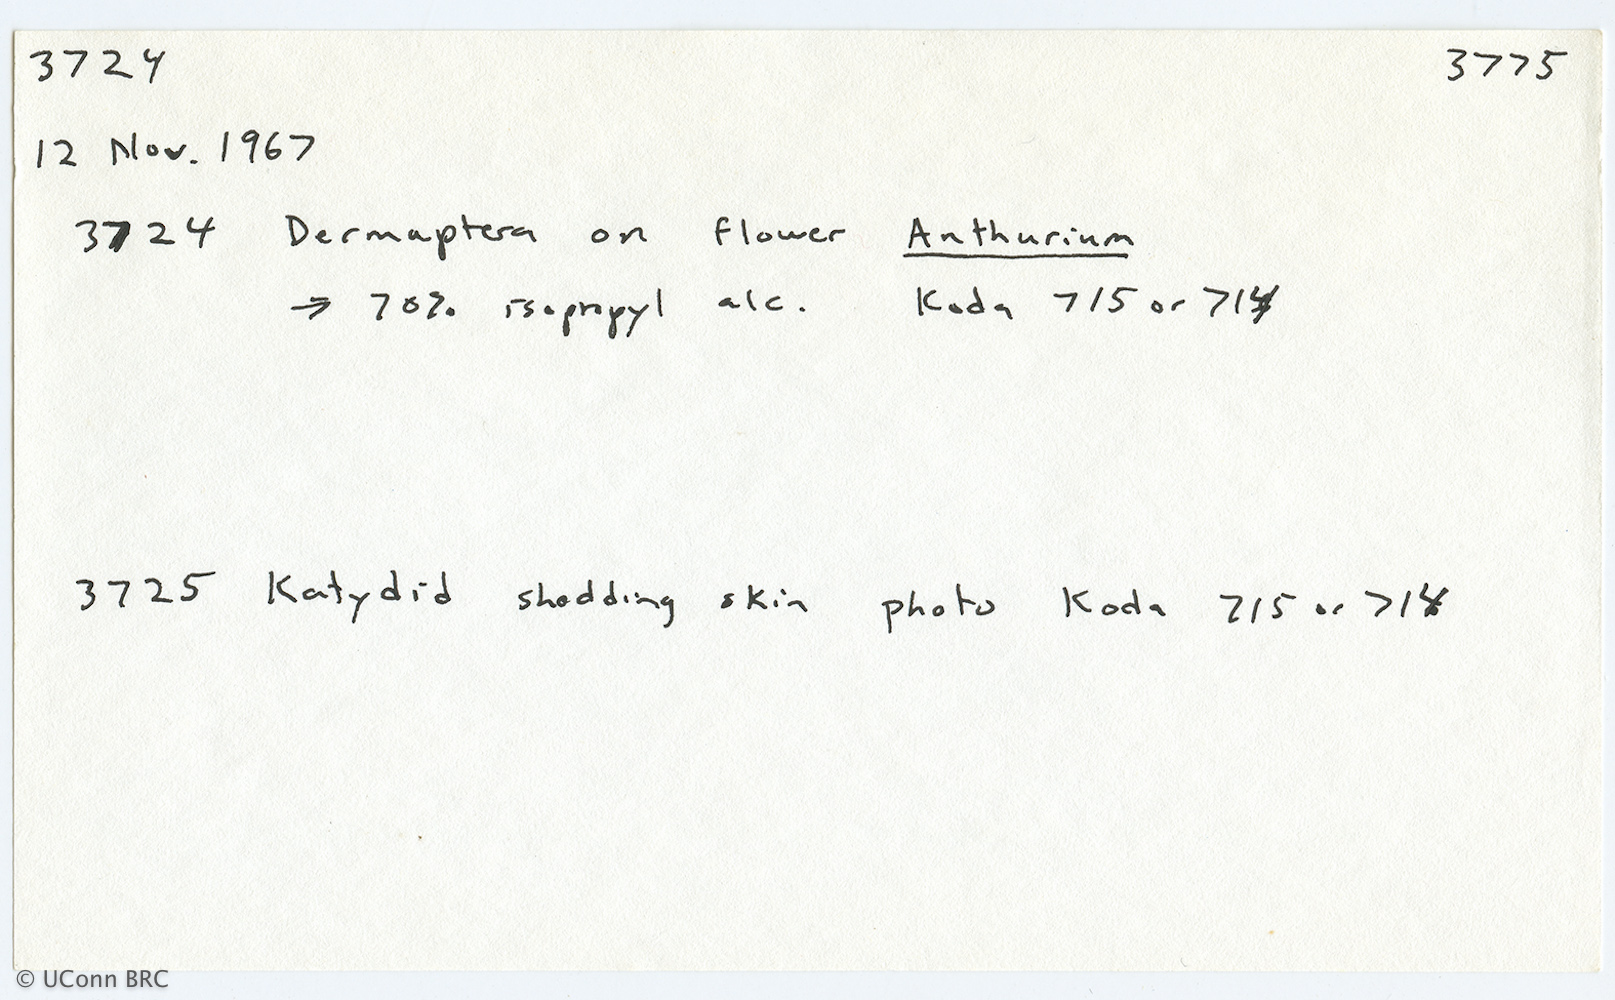 3724 3775
12 Nov. 1967
3724 Dermaptera on flower Anthurium
→ 70% isopropyl alc. Koda 715 or 714
3725 Katydid shedding skin photo Koda 715 or 714
© UConn BRC